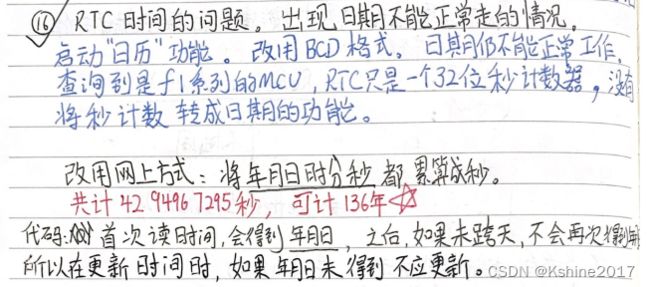 ⑯ RTC 时间的问题。出现日期不能正常走的情况。
启动"日历"功能。改用BCD格式。日期仍不能正常工作,
查询到是f1系列的MCU,RTC只是一个32位秒计数器,没有
将秒计数 转成日期的功能。
改用网上方式:将年月日时分秒 都 累算成秒。
共计 42 9496 7295秒, 可计 136年☆
代码: 首次读时间,会得到 年月日, 之后,如果未跨天,不会再次得到
所以在更新 日时间时,如果 年月日未得到 不应更新。
CSDN @Kshine2017